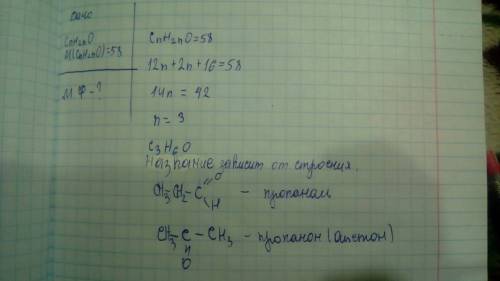 Дано
CnH2nO
M(CnH2nO)=58
МФ-?
CnH2nO=58
12n+2n+16=58
14n = 42
n = 3
C3H6O
Название зависит от строения.
CH3-CH2-C
O
H
- пропаналь
CH3-C-CH3 - пропанон (ацетон)
O